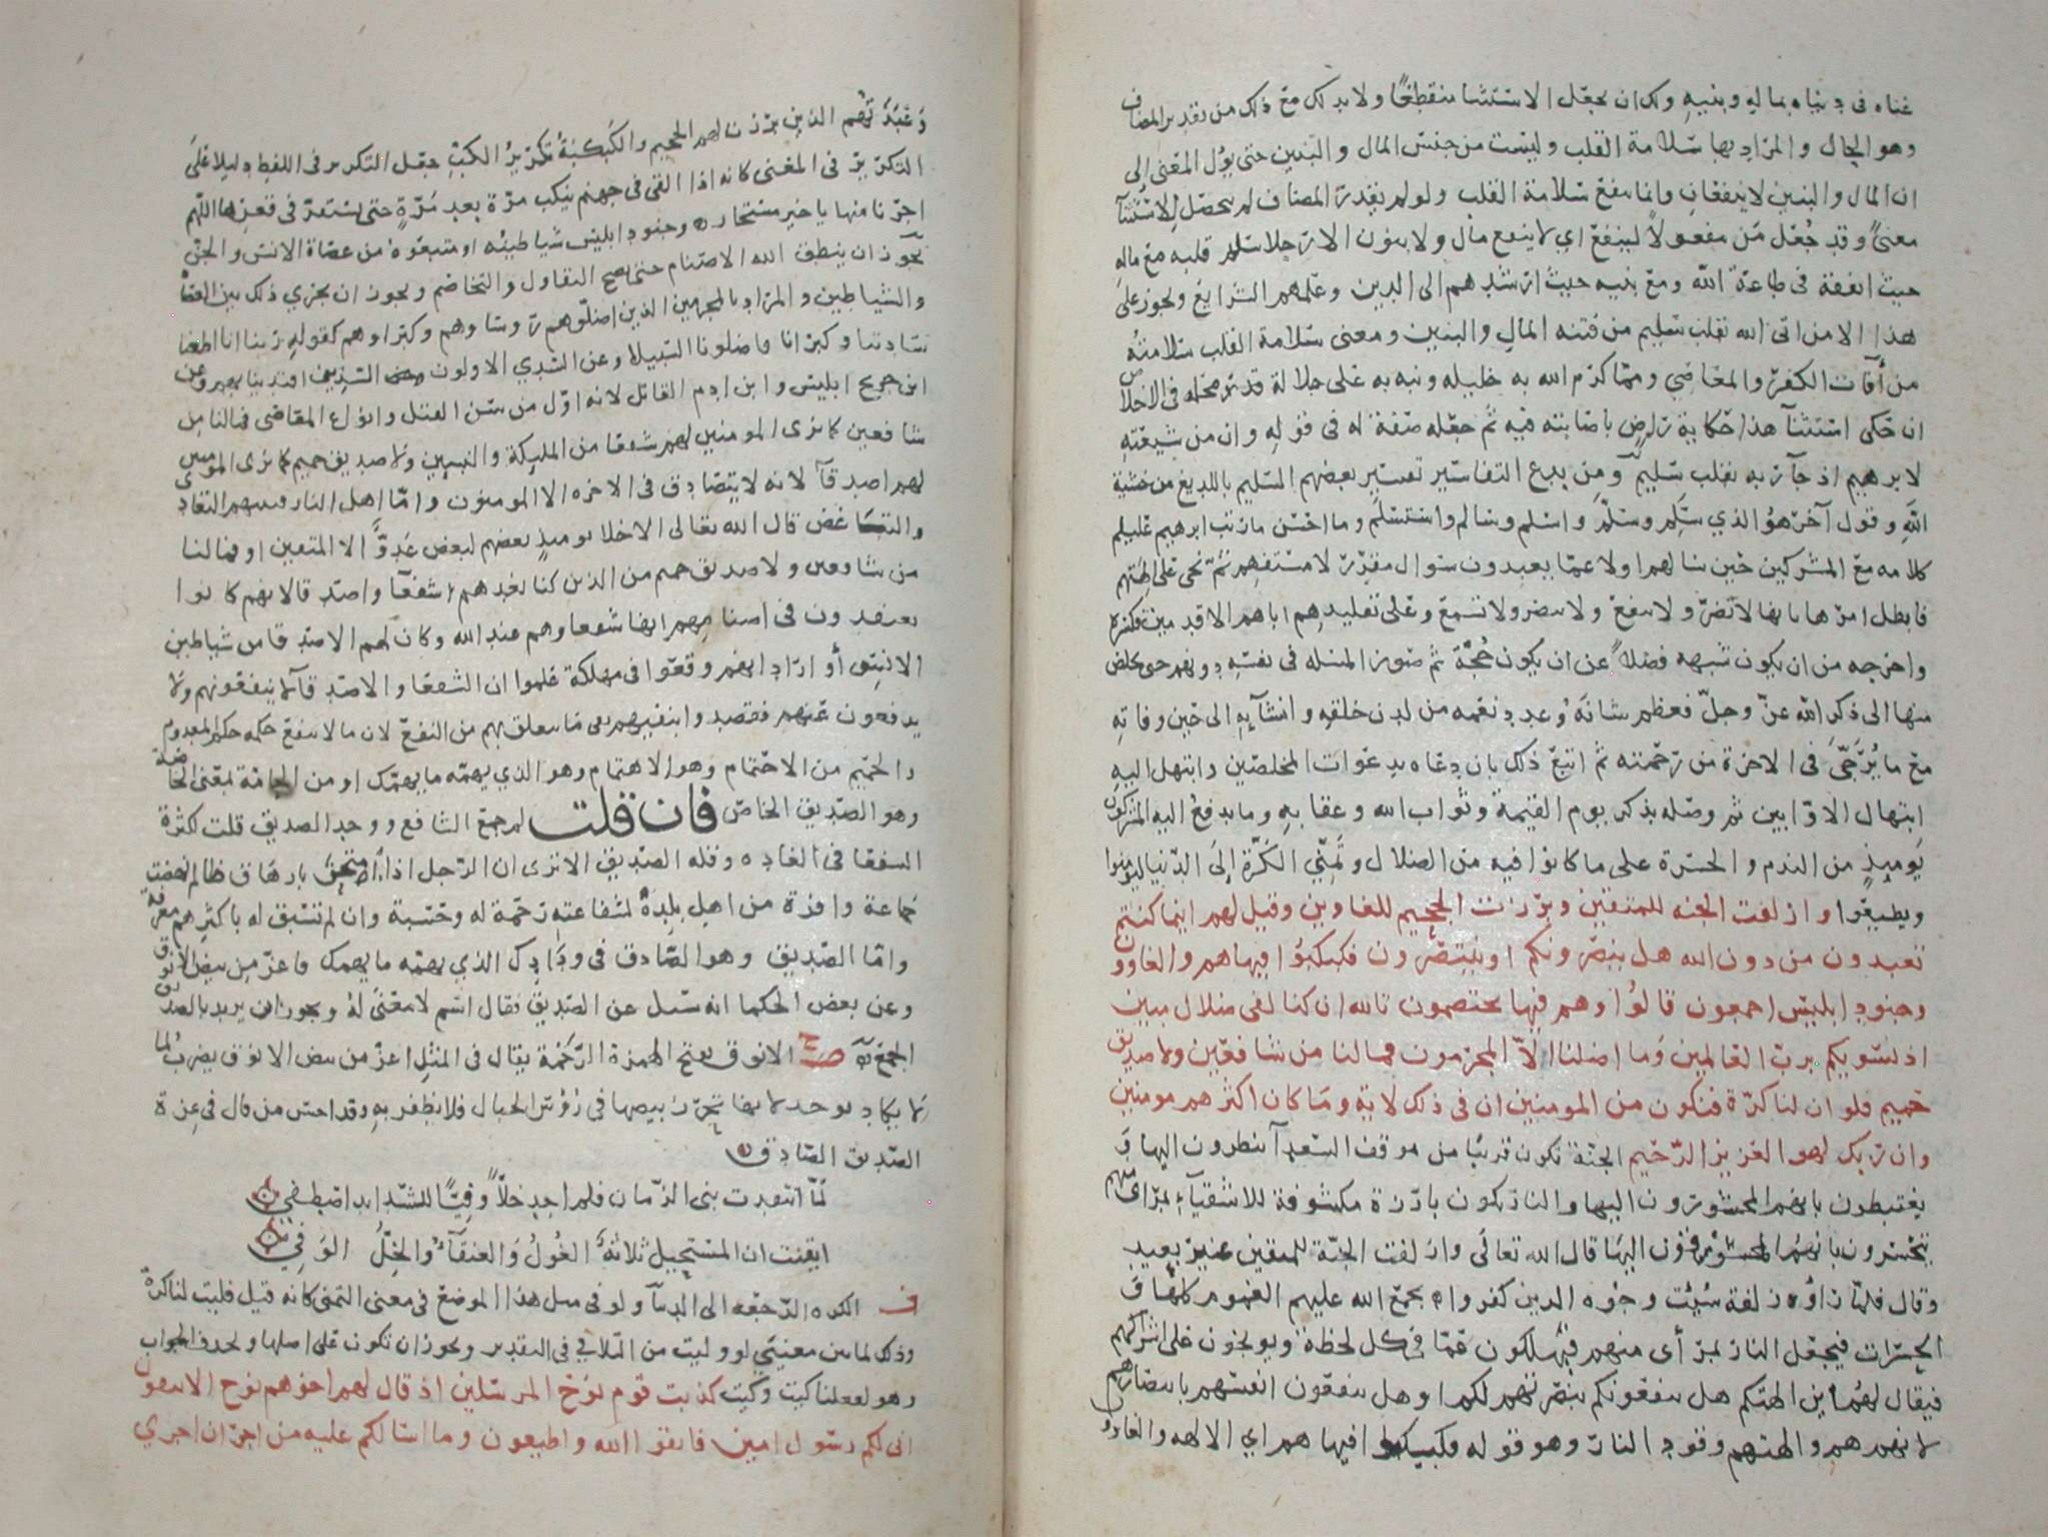 غناه في دنياه بماله وبنيه ولك ان تجعل الاستثنا منقطعًا ولا بد لك مع ذلك من تقدير المضاف
وهو الحال والمراد بها سلامة القلب وليست من جنس المال والبنين حتى يؤل المعنى الى
ان المال والبنين لا ينفعان وانما ينفع سلامة القلب ولو لم يقدر المضاف لم يتحصل للاستثنآ
معنىً وقد جُعل مَن مفعولاً لينفع اي لا ينفع مال ولا بنون الا رجلا سلم قلبه مع ماله
حيث انفقه في طاعة الله ومع بنيه حيث ارشدهم الى الدين وعلمهم الشرايع ويجوز على
هذا الا من اتى الله بقلب سليم من فتنه المال والبنين ومعنى سلامة القلب سلامته
من آفات الكفر والمعاصي ومما كرم الله به خليله ونبه به على جلالة قدره محله في الاخلاص
ان حكى استثنآ هذا حكاية راضٍ باصابته فيه ثم جعله صفة له في قوله وان من شيعته
لابرهيم اذ جآ ربه بقلب سليم ومن بدع التفاسير تفسير بعضهم السليم باللديغ من خشية
الله وقول آخر هو الذي سَلِم وسلّم واسلم وسالم واستسلم وما احسن ما رتب ابرهيم عليلم
كلامه مع المشركين حين سالهم اولا عما يعبدون سوال مقرر لا مستفهم ثم نحى على الهتهم
فابطل امرها بانها لا تضر ولا تنفع ولا تبصر ولا تسمع وعلى تقليدهم اباهم الاقدمين فكسره
واخرجه من ان يكون شبهه فضلاً عن ان يكون حُجّة ثم صور المسله في نفسه دونهم حتى تخلص
منها الى ذكر الله عز وجل فعظم شانه وعدد نعمه من لدن خلقه وانشآيه الى حين وفاته
مع ما يُرَجّى في الاخرة من رحمته ثم اتبع ذلك بان دعاه بدعوات المخلصين وابتهل اليه
ابتهال الاوابين ثم وصله بذكر يوم القيمة وثواب الله وعقابه وما يدفع اليه المشركون
يوميذٍ من الندم والحسرة على ما كانوا فيه من الضلال وتمنّي الكَرّة الى الدنيا ليومنوا
ويطيعوا وازلفت الجنه للمتقين وبرزت الجحيم للغاوين وقيل لهم اينما كنتم
تعبدون من دون الله هل ينصرونكم او ينتصرون فكبكبوا فيها هم والغاوون
وجنود ابليس اجمعون قالوا وهم فيها يختصمون تالله ان كنا لفي ضلال مبين
اذ نسويكم برب العالمين وما اضلنا الا المجرمون فما لنا من شافعين ولا صديق
حميم فلو ان لنا كرة فنكون من المومنين ان في ذلك لاية وما كان اكثرهم مومنين
وان ربك لهو العزيز الرحيم الجنة تكون قريبا من موقف السعدآ ينظرون اليها و
يغتبطون بانهم المحشورون اليها والنار تكون بارزة مكشوفة للاشقيآء بمرأى منهم
يتحسرون بانهم المسوقون اليها قال الله تعالى وازلفت الجنة للمتقين غير بعيد
وقال فلما راوه زلفة سُيئت وجوه الدين كفروا يجمع الله عليهم الغموم كلها و
الحسرات فيجعل النار بمرأى منهم فيهلكون غمًا في كل لحظة ويوبخون على اشراكهم
فيقال لهم اين الهتكم هل ينفعونكم بنصرتهم لكم او هل ينفعون انفسهم بانتصارهم
لانهم هم والهتهم وقود النار وهو قوله فكبكبوا فيها هم اي الالهه والغاوو
وعَبَدَتهم الذين برزت لهم الجحيم والكَبكبة تكريرُ الكبّ جعل التكرير في اللفظ دليلا على
التكرير في المعنى كانه اذا القي في جهنم ينكب مرة بعد مَرّةٍ حتى يستقر في قعرها اللهم
اجرنا منها يا خير مستجار وجنود ابليس شياطينه او متبعوه من عصاة الانس والجن
يجوز ان ينطق الله الاصنام حتى يصح التقاول والتخاصم ويجوز ان يجري ذلك بين العصاه
والشياطين والمراد بالمجرمين الذين اضلوهم روساوهم وكبراوهم كقوله ربنا انا اطعنا
سادتنا وكبرانا فاضلونا السبيلا وعن السدي الاولون الذين اقتدينا بهم وعن
ابن جريج ابليس وابن ادم القاتل لانه اول من سن القتل وانواع المعاصي فمالنا من
شافعين كما نرى المومنين لهم شفعا من المليكة والنبيين ولا صديق حميم كما نرى المومنين
لهم اصدقآ لانه لا يتصادق في الاخره الا المومنون واما اهل النار فبينهم التعادي
والتباغض قال الله تعالى الاخلا يوميذٍ بعضهم لبعض عَدوٌّ الا المتقين او فما لنا
من شافعين ولا صديق حميم من الذين كنا نعدهم شفعآ واصدقا لانهم كانوا
يعتقدون في اصنامهم انها شفعاوهم عند الله وكان لهم الاصدقا من شياطين
الانس أو ارادا انهم وقعوا في مهلكة علموا ان الشفعا والاصدقآ لا ينفعونهم ولا
يدفعون عنهم فقصدوا بنفيهم نفى ما يتعلق بهم من النفع لان ما لا ينفع حكمه حكم المعدوم
والحميم من الاحتمام وهو الاهتمام وهو الذي يهمه ما يهمك او من الحامّة بمعنى الخاصّة
وهو الصديق الخاص فان قلت لم جمع الشافع ووحد الصديق قلت لكثرة
الشفعا في العاده وقلة الصديق الا ترى ان الرجل اذا امتحن بارهاق ظالم نهضت
جماعة وافرة من اهل بلده لشفاعته رحمة له وحسبة وان لم تسبق له باكثرهم معرفة
واما الصديق وهو الصادق في ودادك الذي يهمه ما يهمك فاعز من بيض الانوق
وعن بعض الحكما انه سيل عن الصديق فقال اسم لا معنى له ويجوز ان يريد بالصديق
الجمع صح الانوق بفتح الهمزة الرّخمة يقال في المثل اعز من بيض الانوق يضرب لما
لا يكاد يوجد لانها تحرز بيضها في رؤس الجبال فلا يظفر به وقد احسن من قال في عزة
الصديق الصادق
لمّا انتقدت بني الزمان فلم اجد خلّاً وفيًّا للشدايد اصطفي
ايقنت ان المستحيل ثلاثةٌ الغُولُ والعنقآءُ والخِلُّ الوَفي
ف الكره الرجعه الى الدنيآ ولو في مثل هذا الموضع في معنى التمني كانه قيل فليت لنا كرةً
وذلك لما بين معنيي لو وليت من التلاقي في التقدير ويجوز ان تكون على اصلها ويحذف الجواب
وهو لفعلنا كيت وكيت كذبت قوم نوح المرسلين اذ قال لهم اخوهم نوح الا تتقون
اني لكم رسول امين فاتقوا الله واطيعون وما اسالكم عليه من اجر ان اجري